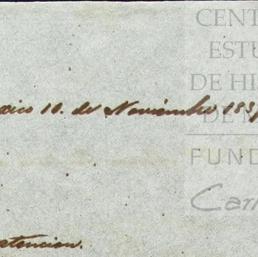 CENT
ESTU
DE HI
DE
FUND
Car
xico 10. de Noviembre 185
stencion.